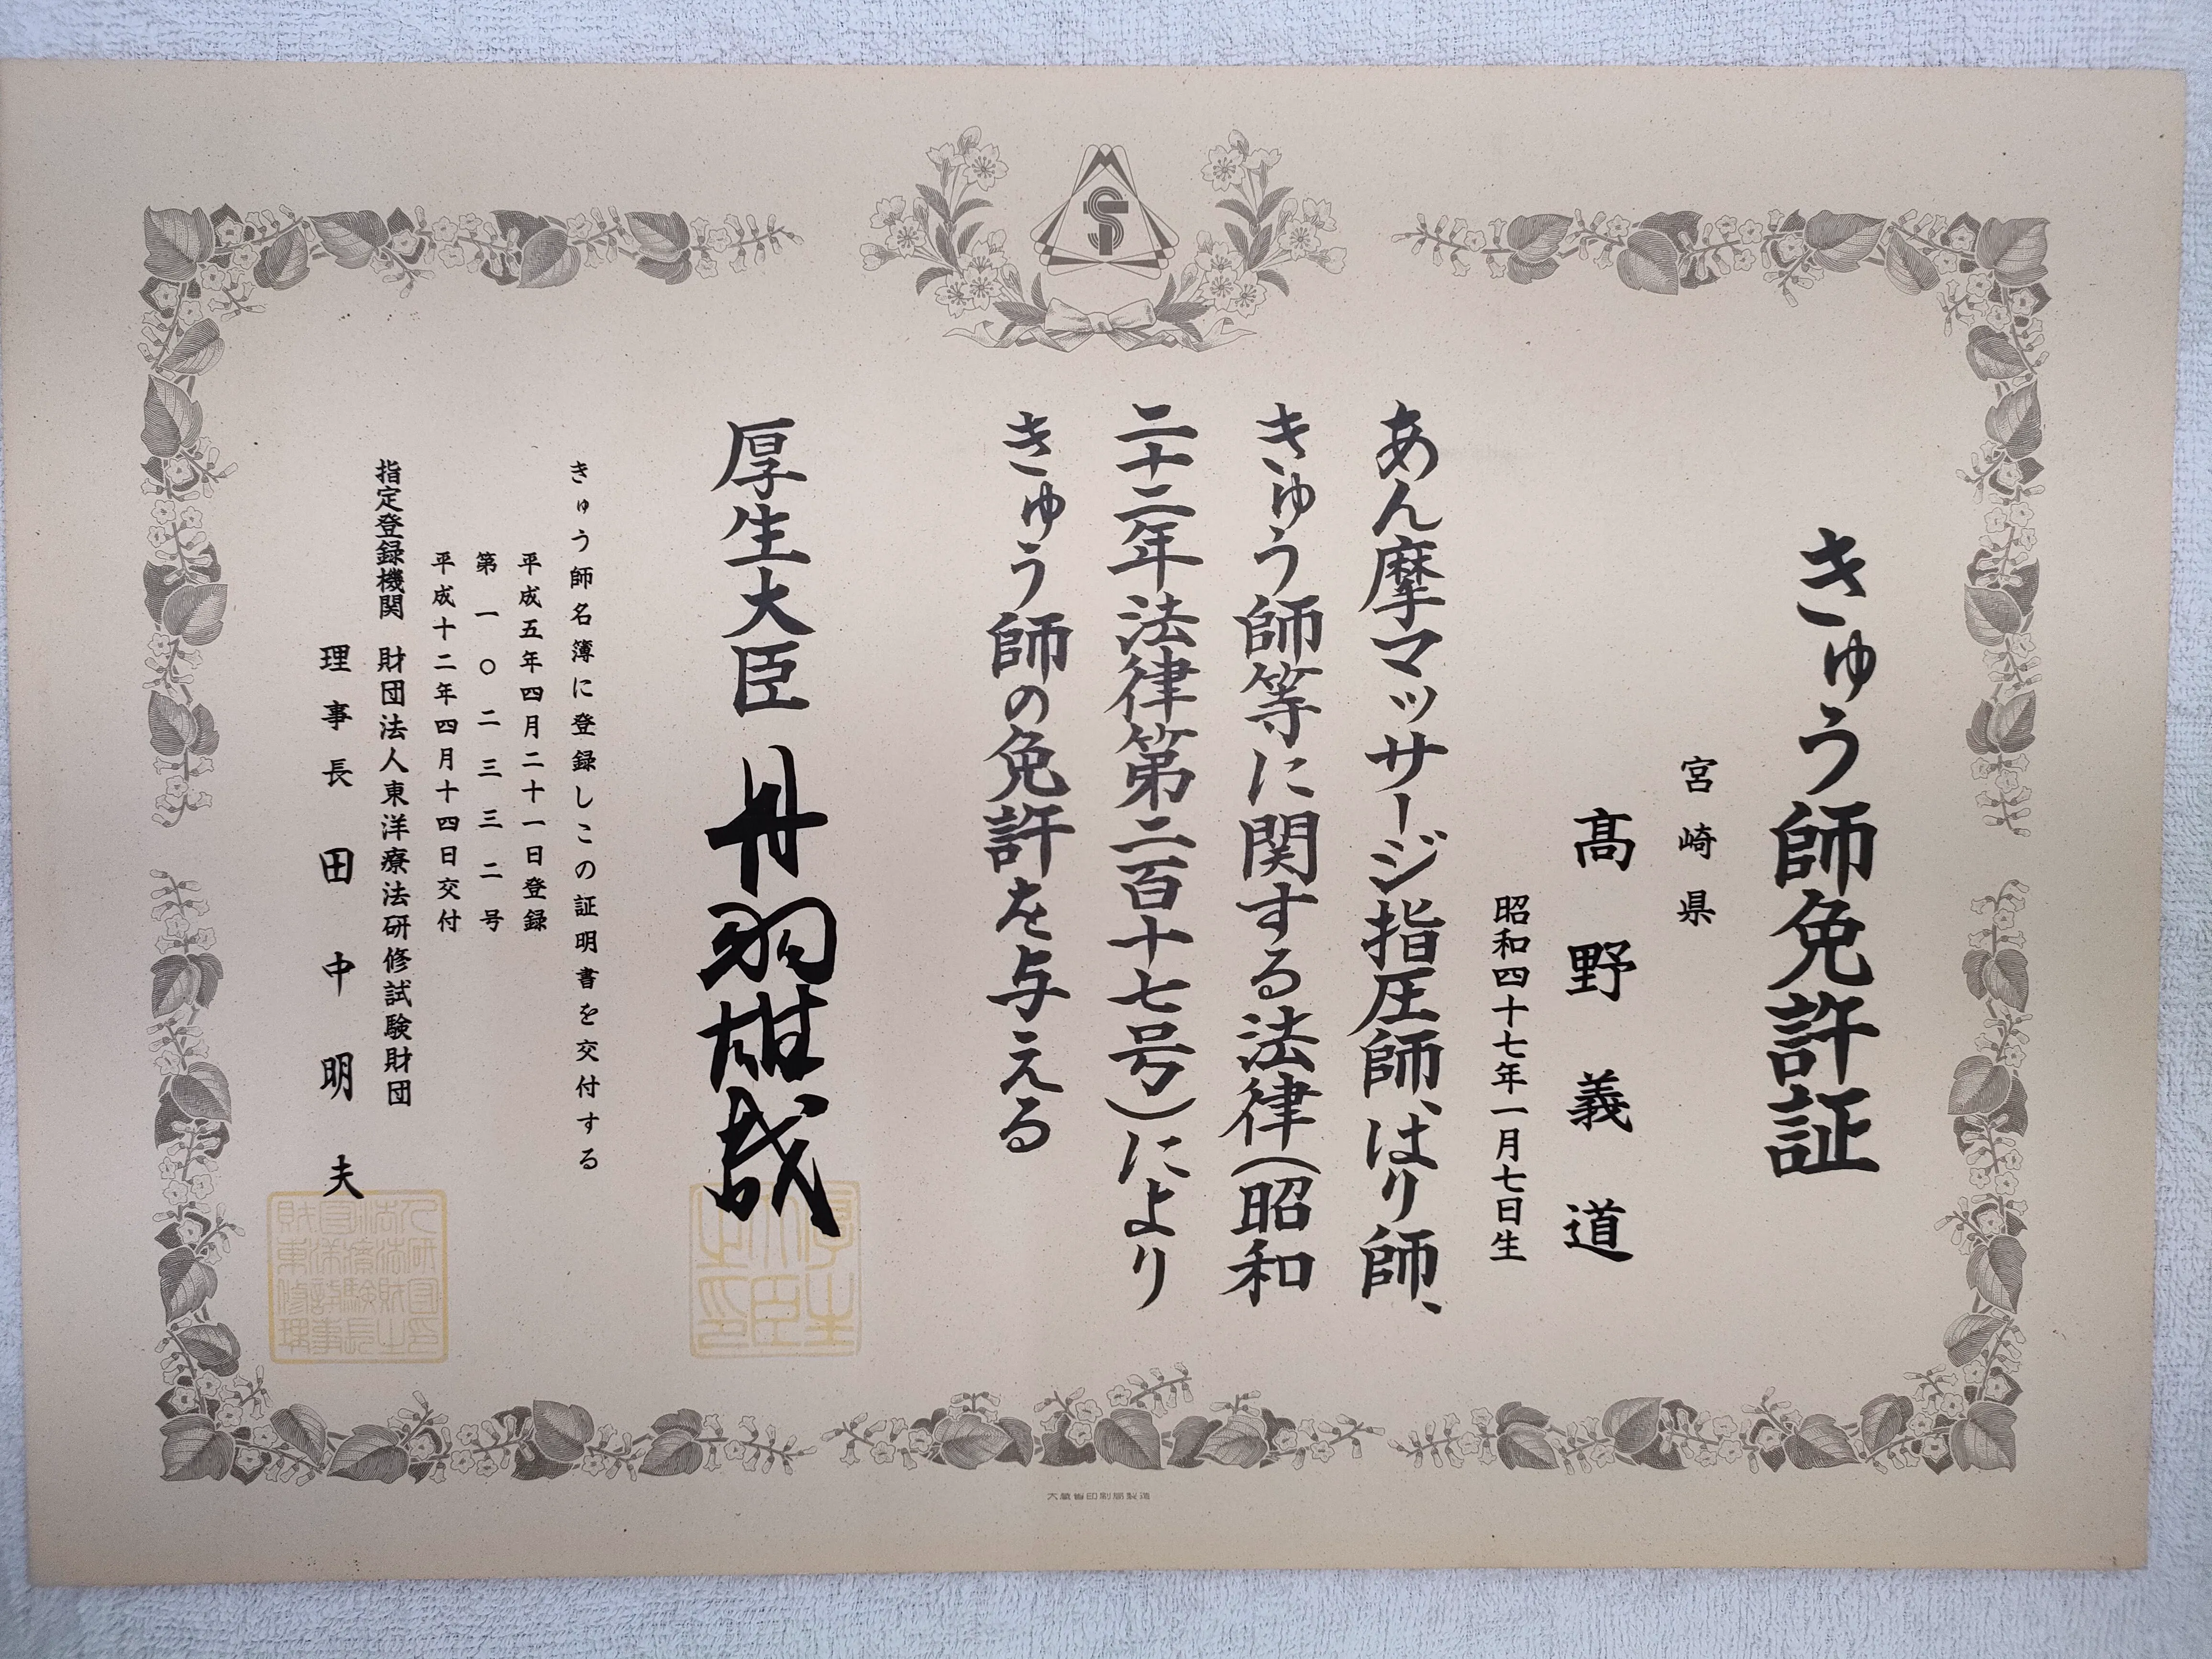 きゅう師免許証
宮崎県
髙野義道
昭和四十七年一月七日生
あん摩マッサージ指圧師、はり師、
きゅう師等に関する法律(昭和
二十二年法律第二百十七号)により
きゅう師の免許を与える
厚生大臣 丹羽雄哉
きゅう師名簿に登録しこの証明書を交付する
平成五年四月二十一日登録
第一〇二三三二号
平成十二年四月十四日交付
指定登録機関 財団法人東洋療法研修試験財団
理事長 田中明夫
厚生大臣之印
大蔵省印刷局製造